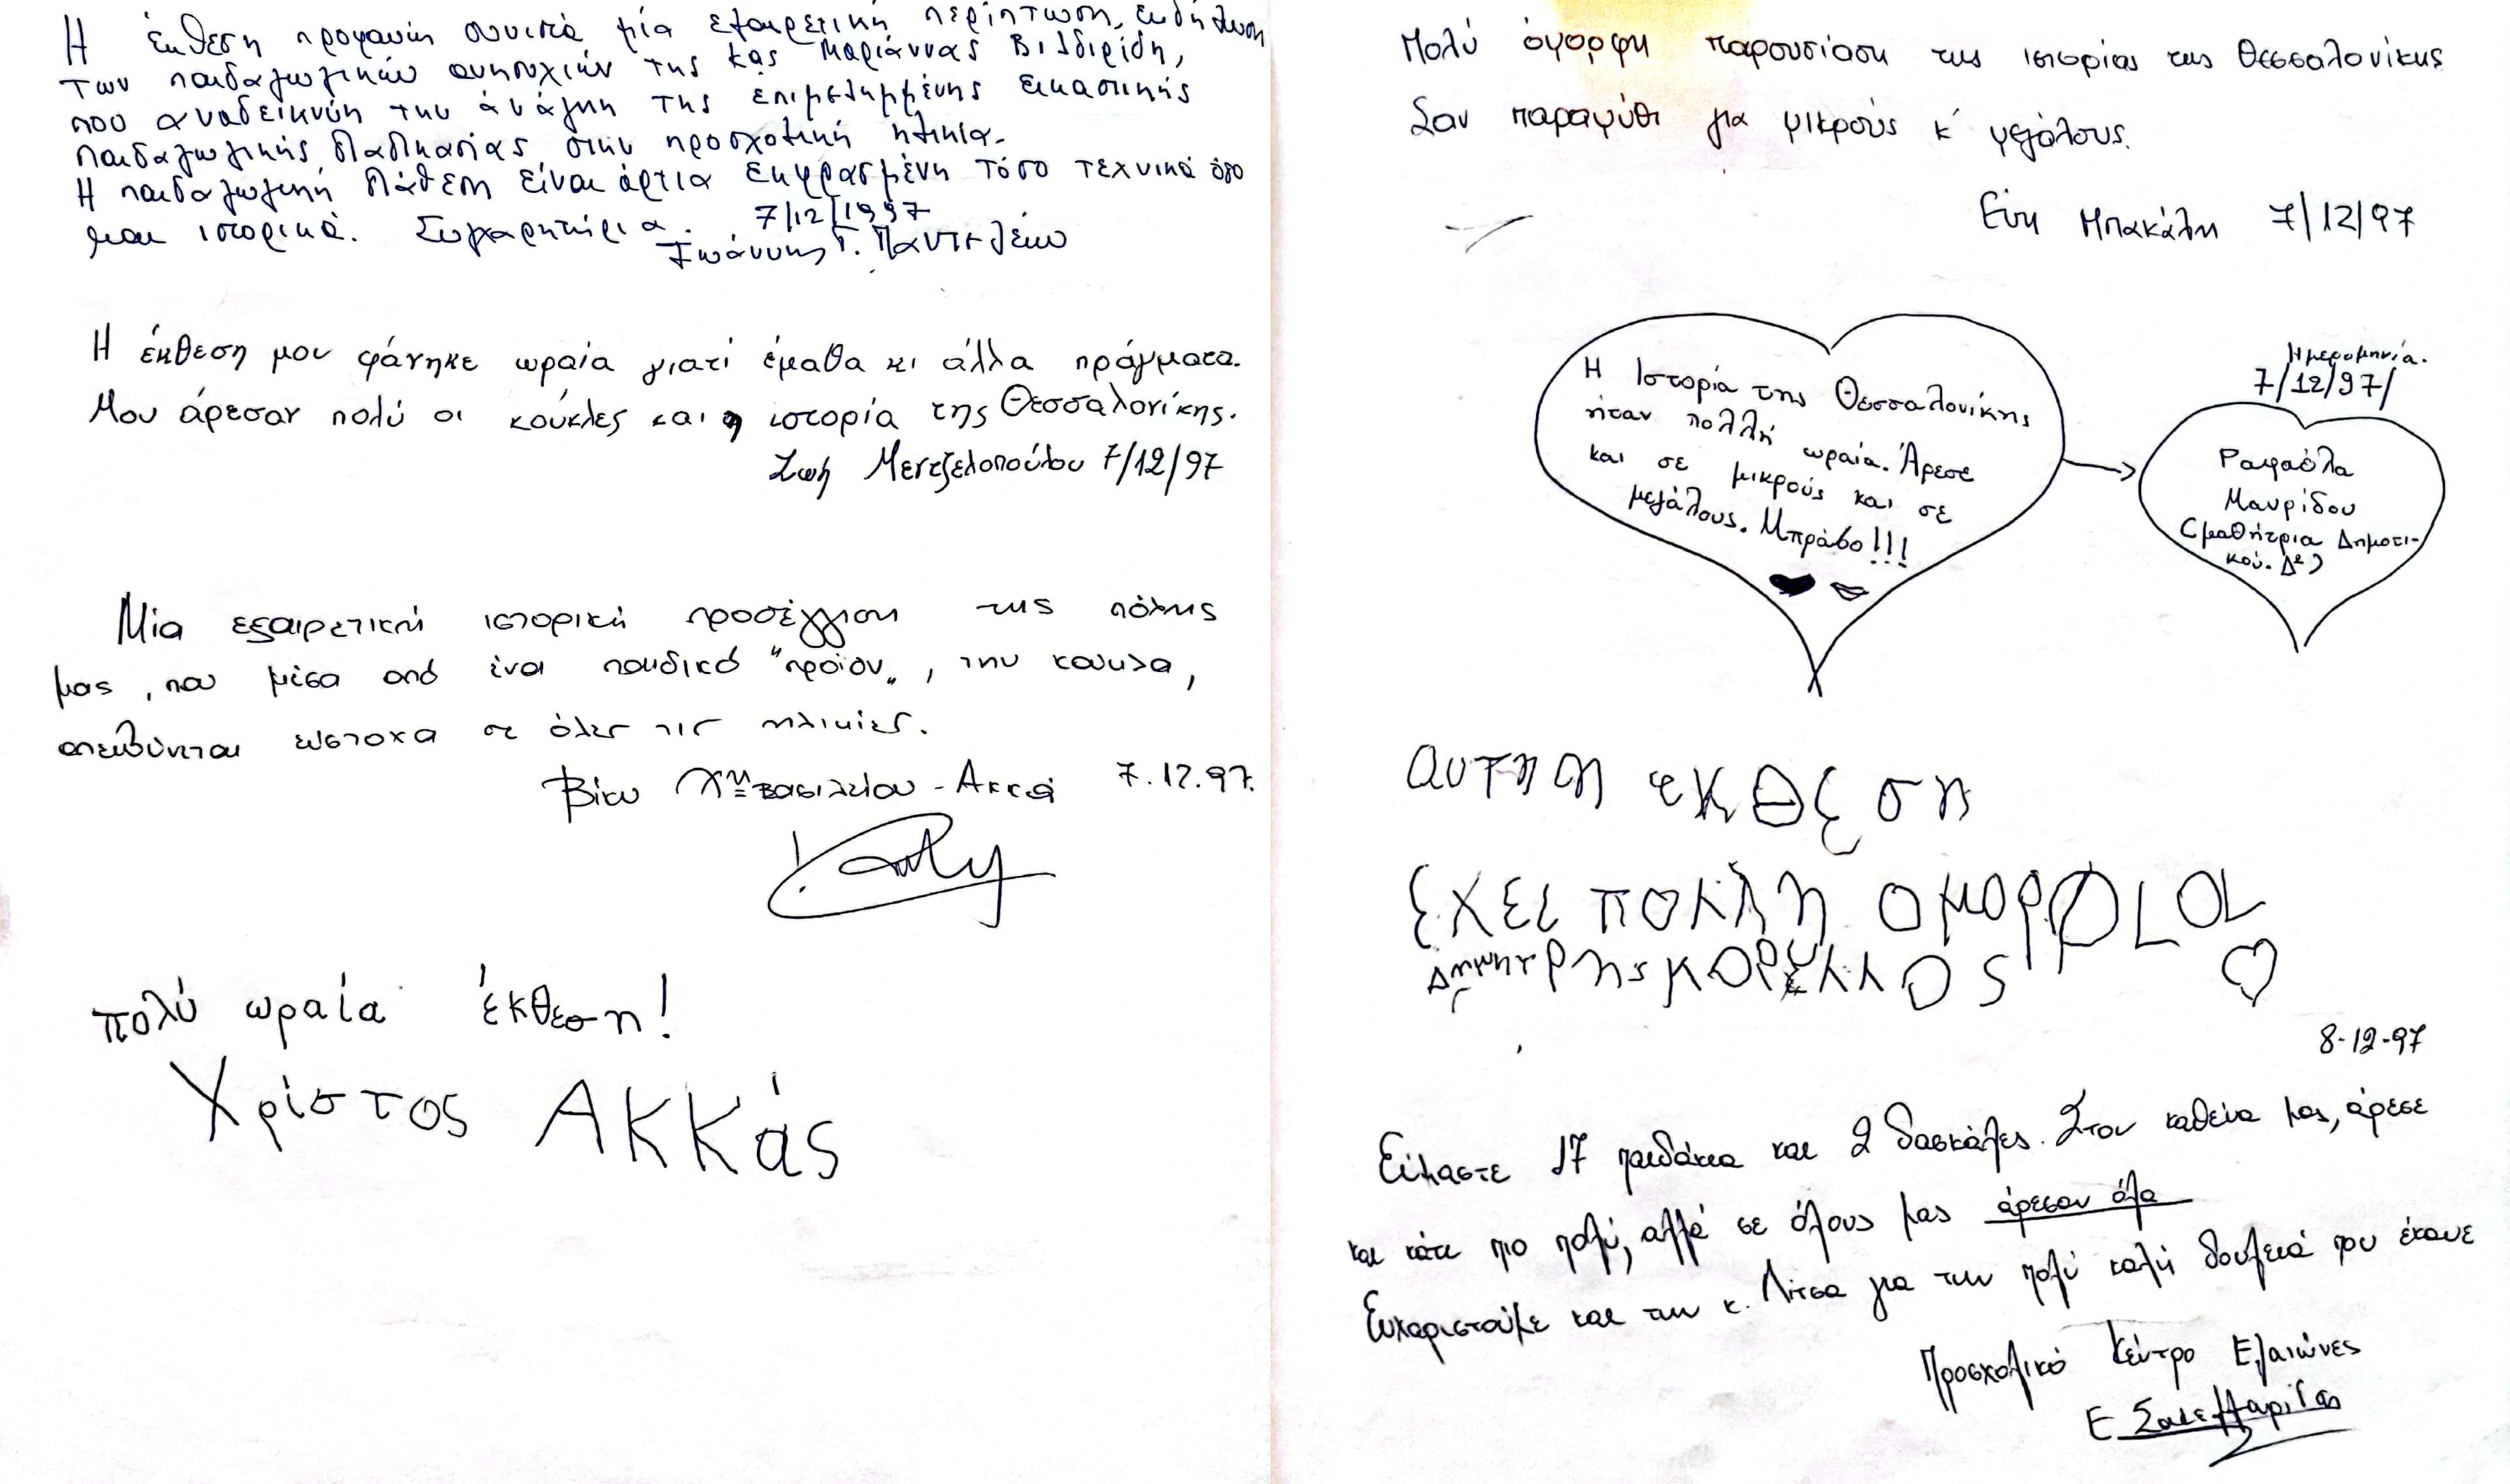 Η έκθεση προφανώς συνιστά μία εξαιρετική περίπτωση, εκδήλωση
των παιδαγωγικών ανησυχιών της κας Μαριάννας Βιλδιρίδη,
που αναδεικνύη την ανάγκη της επιμελημμένης εικαστικής
παιδαγωγικής διαδικασίας στην προσχολική ηλικία.
Η παιδαγωγική διάθεση είναι άρτια εκφρασμένη τόσο τεχνικά όσο
και ιστορικά. Συγχαρητήρια. 7/12/1997
Ιωάννης Γ. Παντελέκο
Η έκθεση μου φάνηκε ωραία γιατί έμαθα κι άλλα πράγματα.
Μου άρεσαν πολύ οι κούκλες και η ιστορία της Θεσσαλονίκης.
Ζωή Μεντζελοπούλου 7/12/97
Μία εξαιρετική ιστορική προσέγγιση της πόλης
μας, που μέσα από ένα παιδικό "προϊόν", την κούκλα,
απευθύνεται εύστοχα σε όλες τις ηλικίες.
Βίκυ Χ"βασιλείου - Ακκά 7.12.97.
πολύ ωραία έκθεση!
Χρίστος Ακκάς
Πολύ όμορφη παρουσίαση της ιστορίας της Θεσσαλονίκης
Σαν παραμύθι για μικρούς κ' μεγάλους.
Εύη Μπακάλη 7/12/97
Η Ιστορία της Θεσσαλονίκης
ήταν πολλή ωραία. Άρεσε
και σε μικρούς και σε
μεγάλους. Μπράβο!!!
Ημερομηνία.
7/12/97/
Ραφαέλα
Μαυρίδου
(μαθήτρια Δημοτι-
κού. Δε)
αυτη η εκθεση
εχει πολλη ομορφ
Δημητρης κορελλος
8-12-97
Είμαστε 17 παιδάκια και 2 δασκάλες. Στον καθένα μας, άρεσε
και κάτι πιο πολύ, αλλά σε όλους μας άρεσαν όλα
Ευχαριστούμε και την κ. Λίτσα για την πολύ καλή δουλειά που έκανε
Προσχολικό Κέντρο Ελαιώνες
Ε